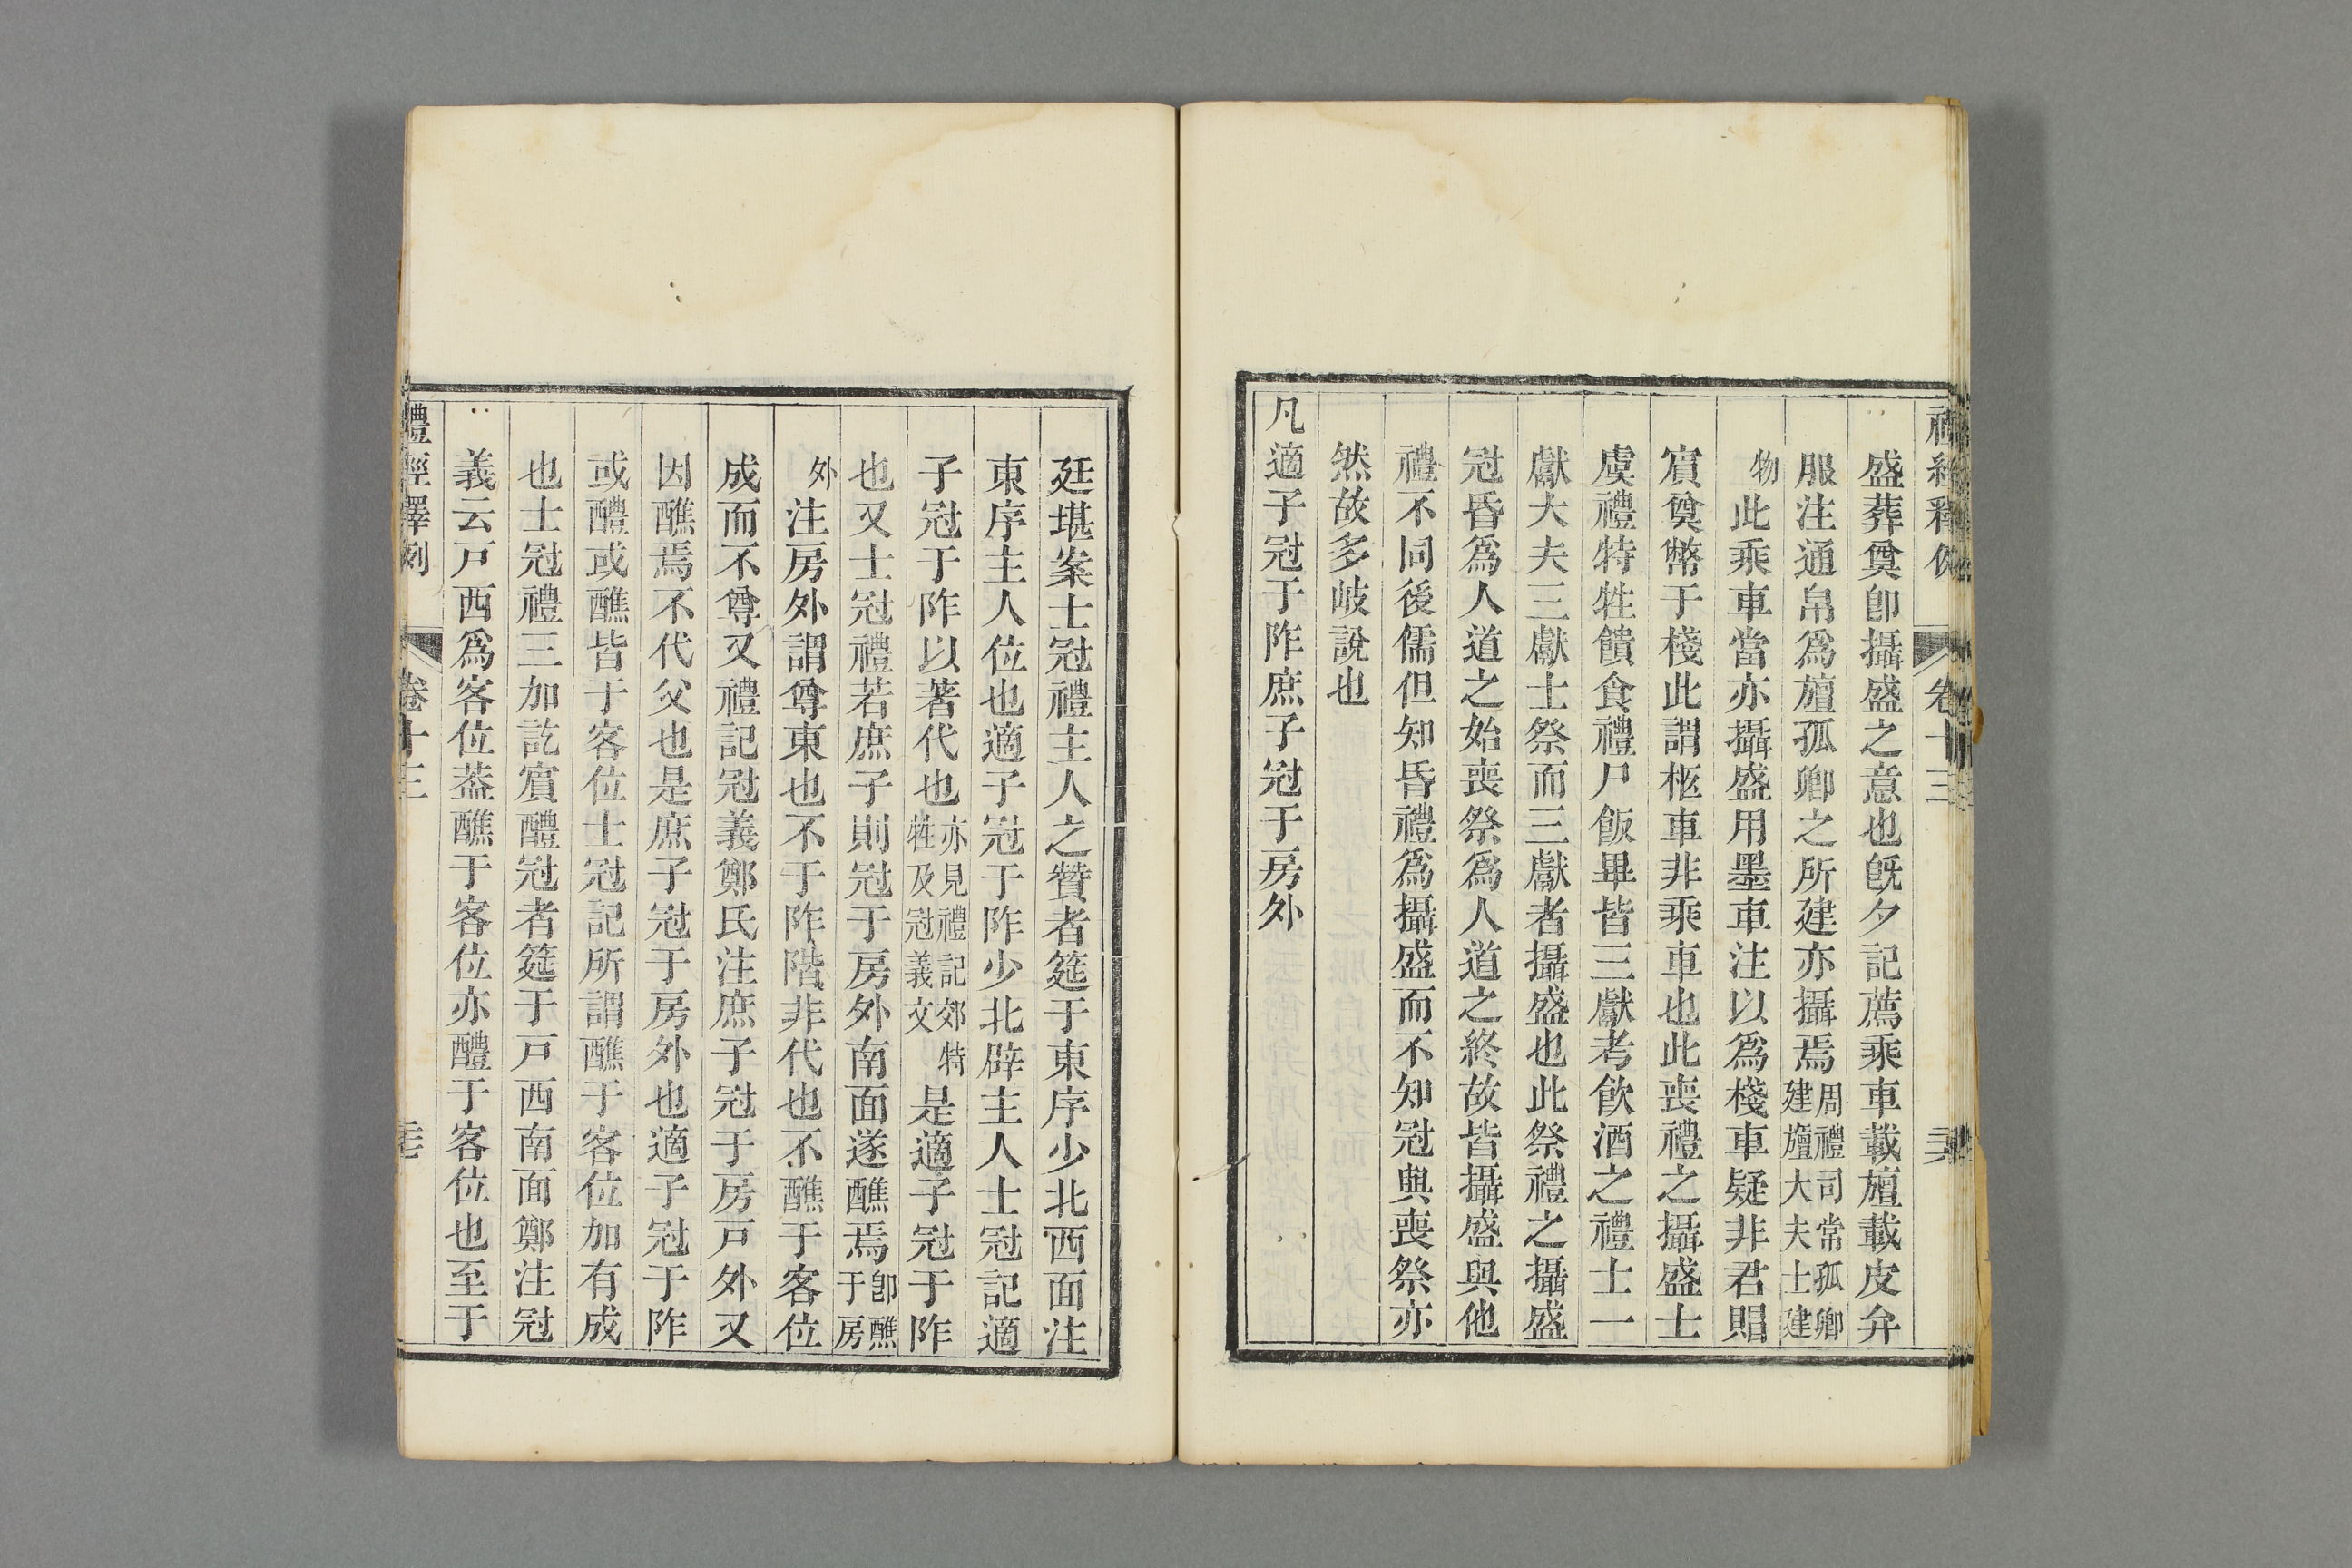 盛葬奠卽攝盛之意也旣夕記薦乘車載旜載皮弁
服注通帛爲旜孤卿之所建亦攝焉周禮司常孤卿建旜大夫士建
物此乘車當亦攝盛用墨車注以爲棧車疑非君賵
賔奠幣于棧此謂柩車非乘車也此喪禮之攝盛士
虞禮特牲饋食禮尸飯畢皆三獻考飮酒之禮士一
獻大夫三獻士祭而三獻者攝盛也此祭禮之攝盛
冠昏爲人道之始喪祭爲人道之終故皆攝盛與他
禮不同後儒但知昏禮爲攝盛而不知冠與喪祭亦
然故多岐說也
凡適子冠于阼庶子冠于房外
廷堪案士冠禮主人之贊者筵于東序少北西面注
東序主人位也適子冠于阼少北辟主人士冠記適
子冠于阼以著代也亦見禮記郊特牲及冠義文是適子冠于阼
也又士冠禮若庶子則冠于房外南面遂醮焉卽醮于房
外注房外謂尊東也不于阼階非代也不醮于客位
成而不尊又禮記冠義鄭氏注庶子冠于房戸外又
因醮焉不代父也是庶子冠于房外也適子冠于阼
或醴或醮皆于客位士冠記所謂醮于客位加有成
也士冠禮三加訖賔醴冠者筵于戸西南面鄭注冠
義云戸西爲客位葢醮于客位亦醴于客位也至于
禮經釋例 卷十三